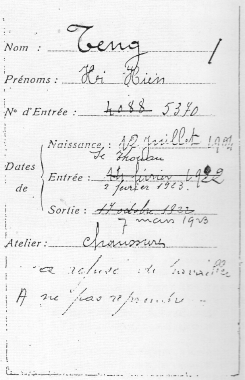 Nom : Teng
Prénoms : Hi Hien
N° d'Entrée : 4088 5370
Naissance, 12 juillet 1904
Se Tchouan
Dates de
Entrée : 14 février 1922
2 février 1923.
Sortie : 17 octobre 1922
7 mars 1923
Atelier : Chaussures
a refusé de travailler
A ne pas reprendre